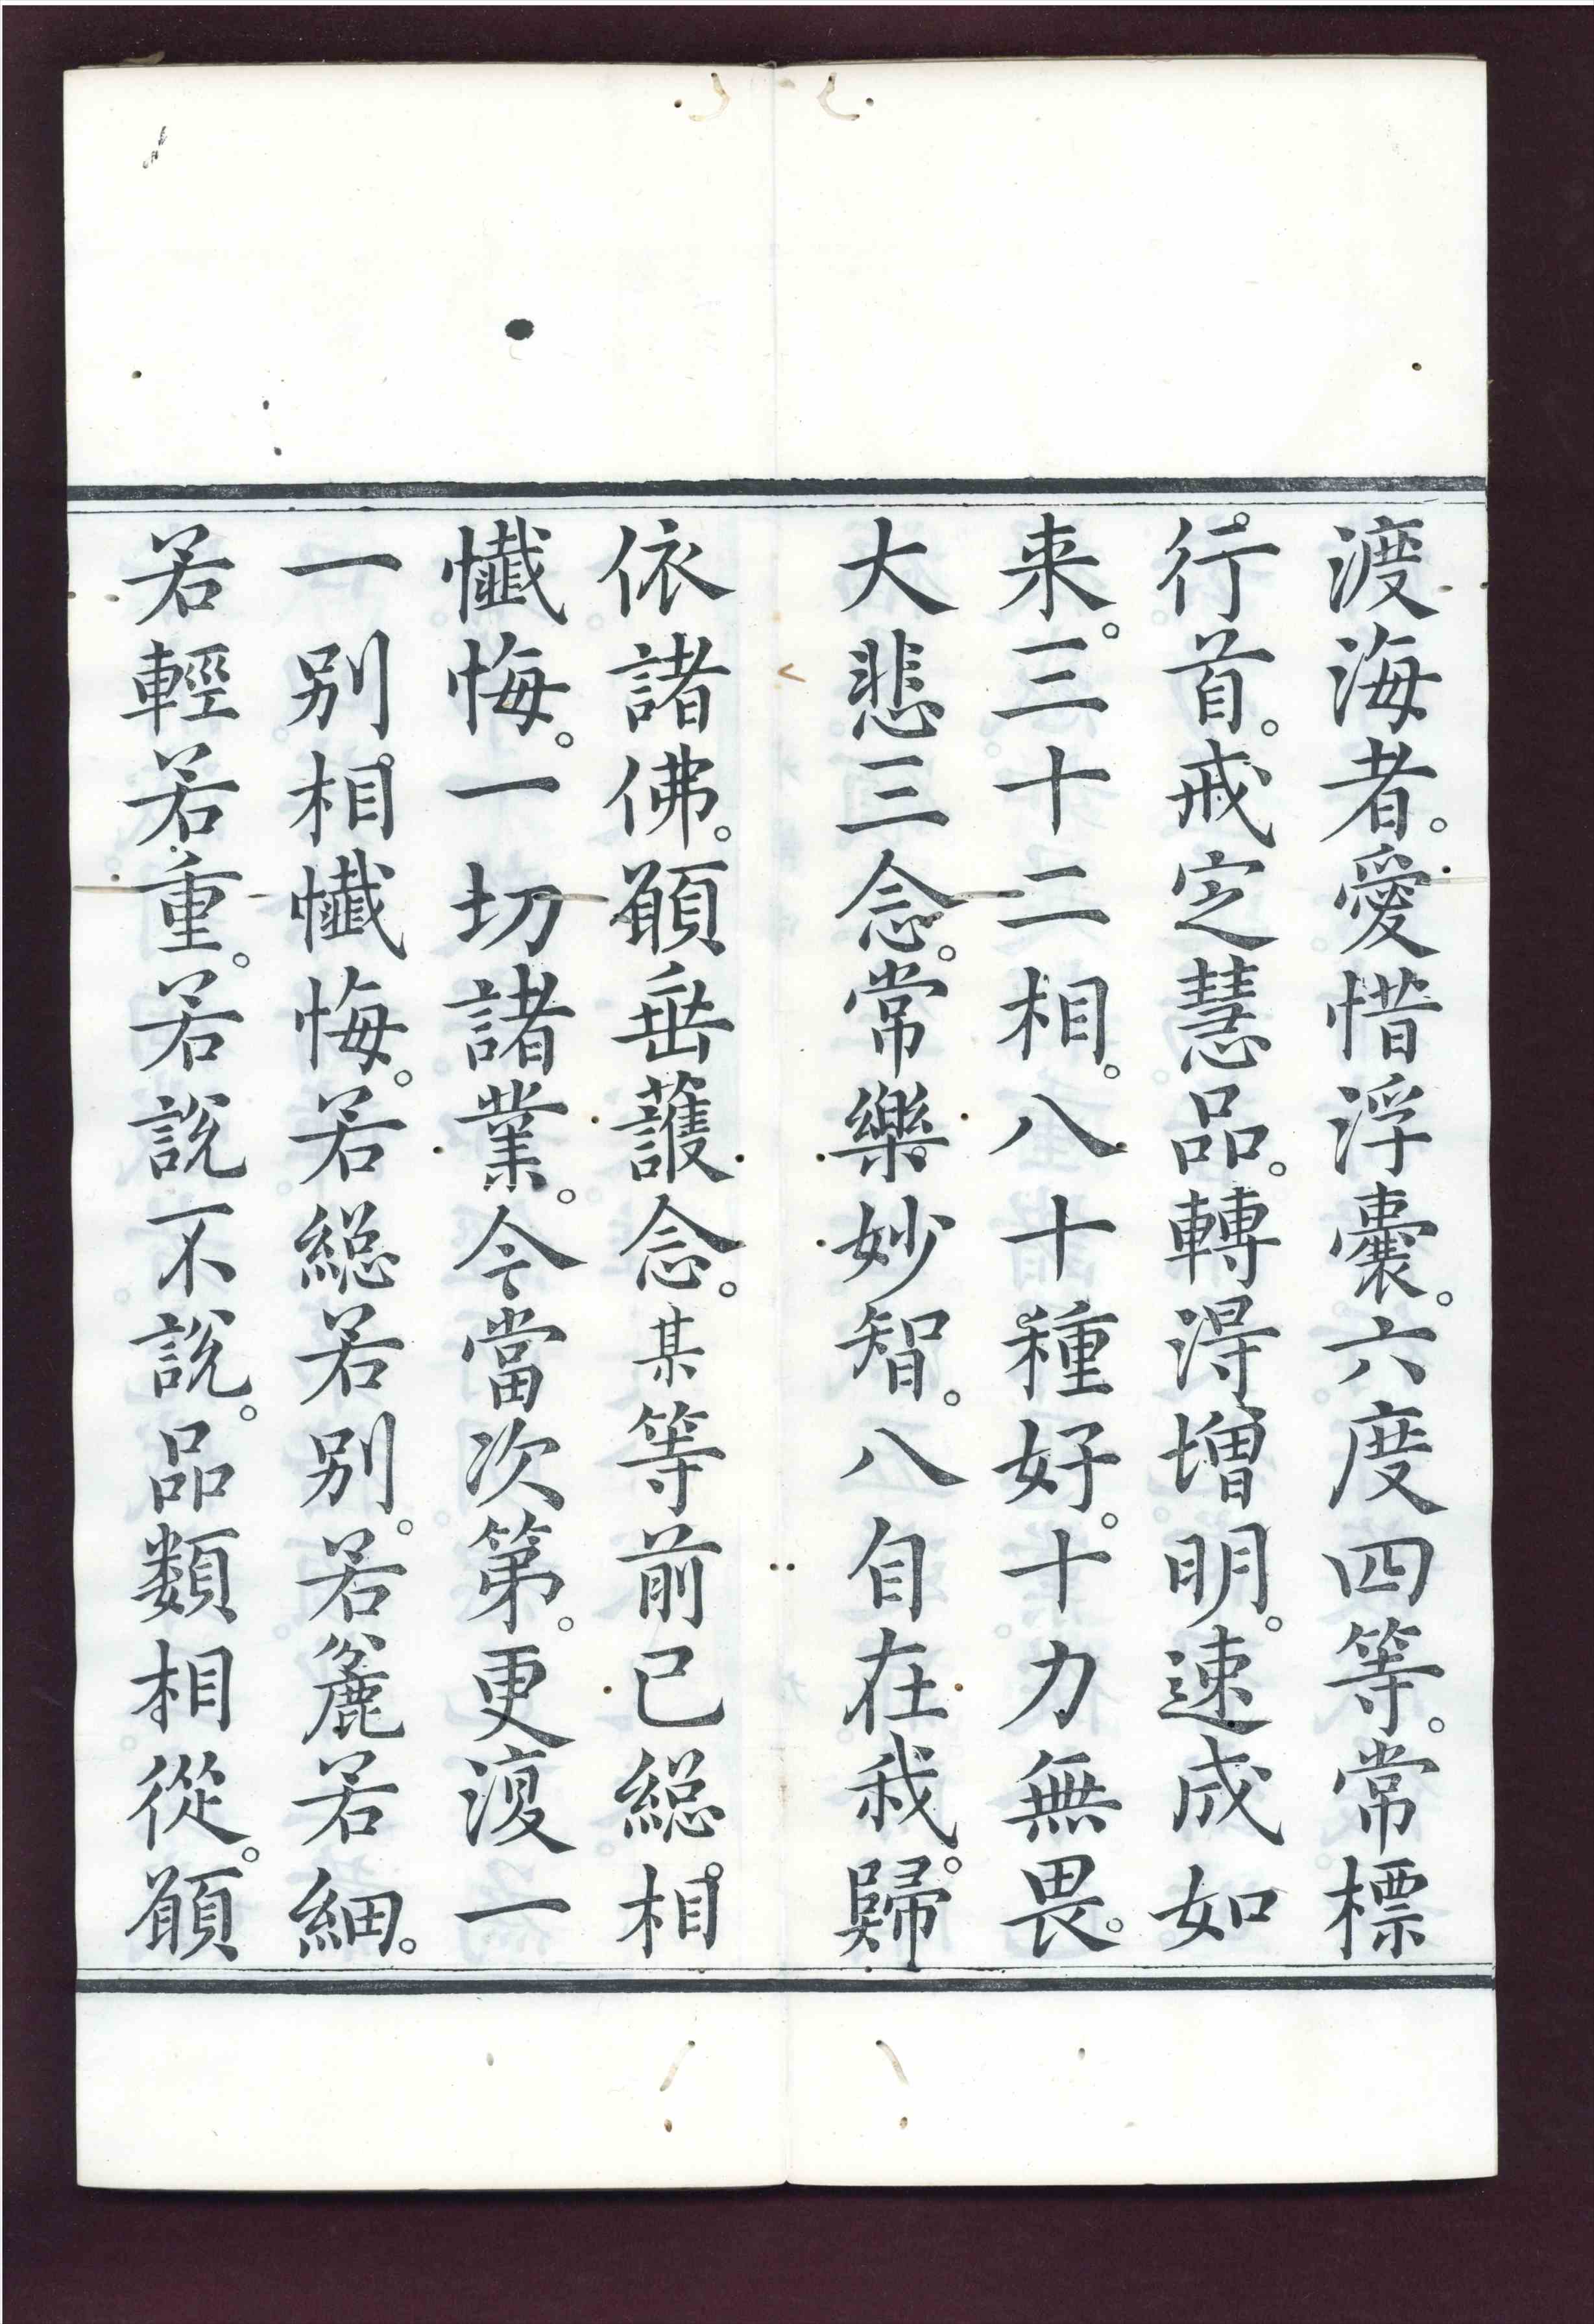 渡海者。愛惜浮囊。六度四等。常標
行首。戒定慧品。轉得增明。速成如
来。三十二相。八十種好。十力無畏。
大悲三念。常樂妙智。八自在我。歸
依諸佛。願垂護念。某等前已総相
懺悔。一切諸業。今當次第。更復一
一別相懺悔。若総若別。若麄若細。
若輕若重。若說不說。品類相從。願